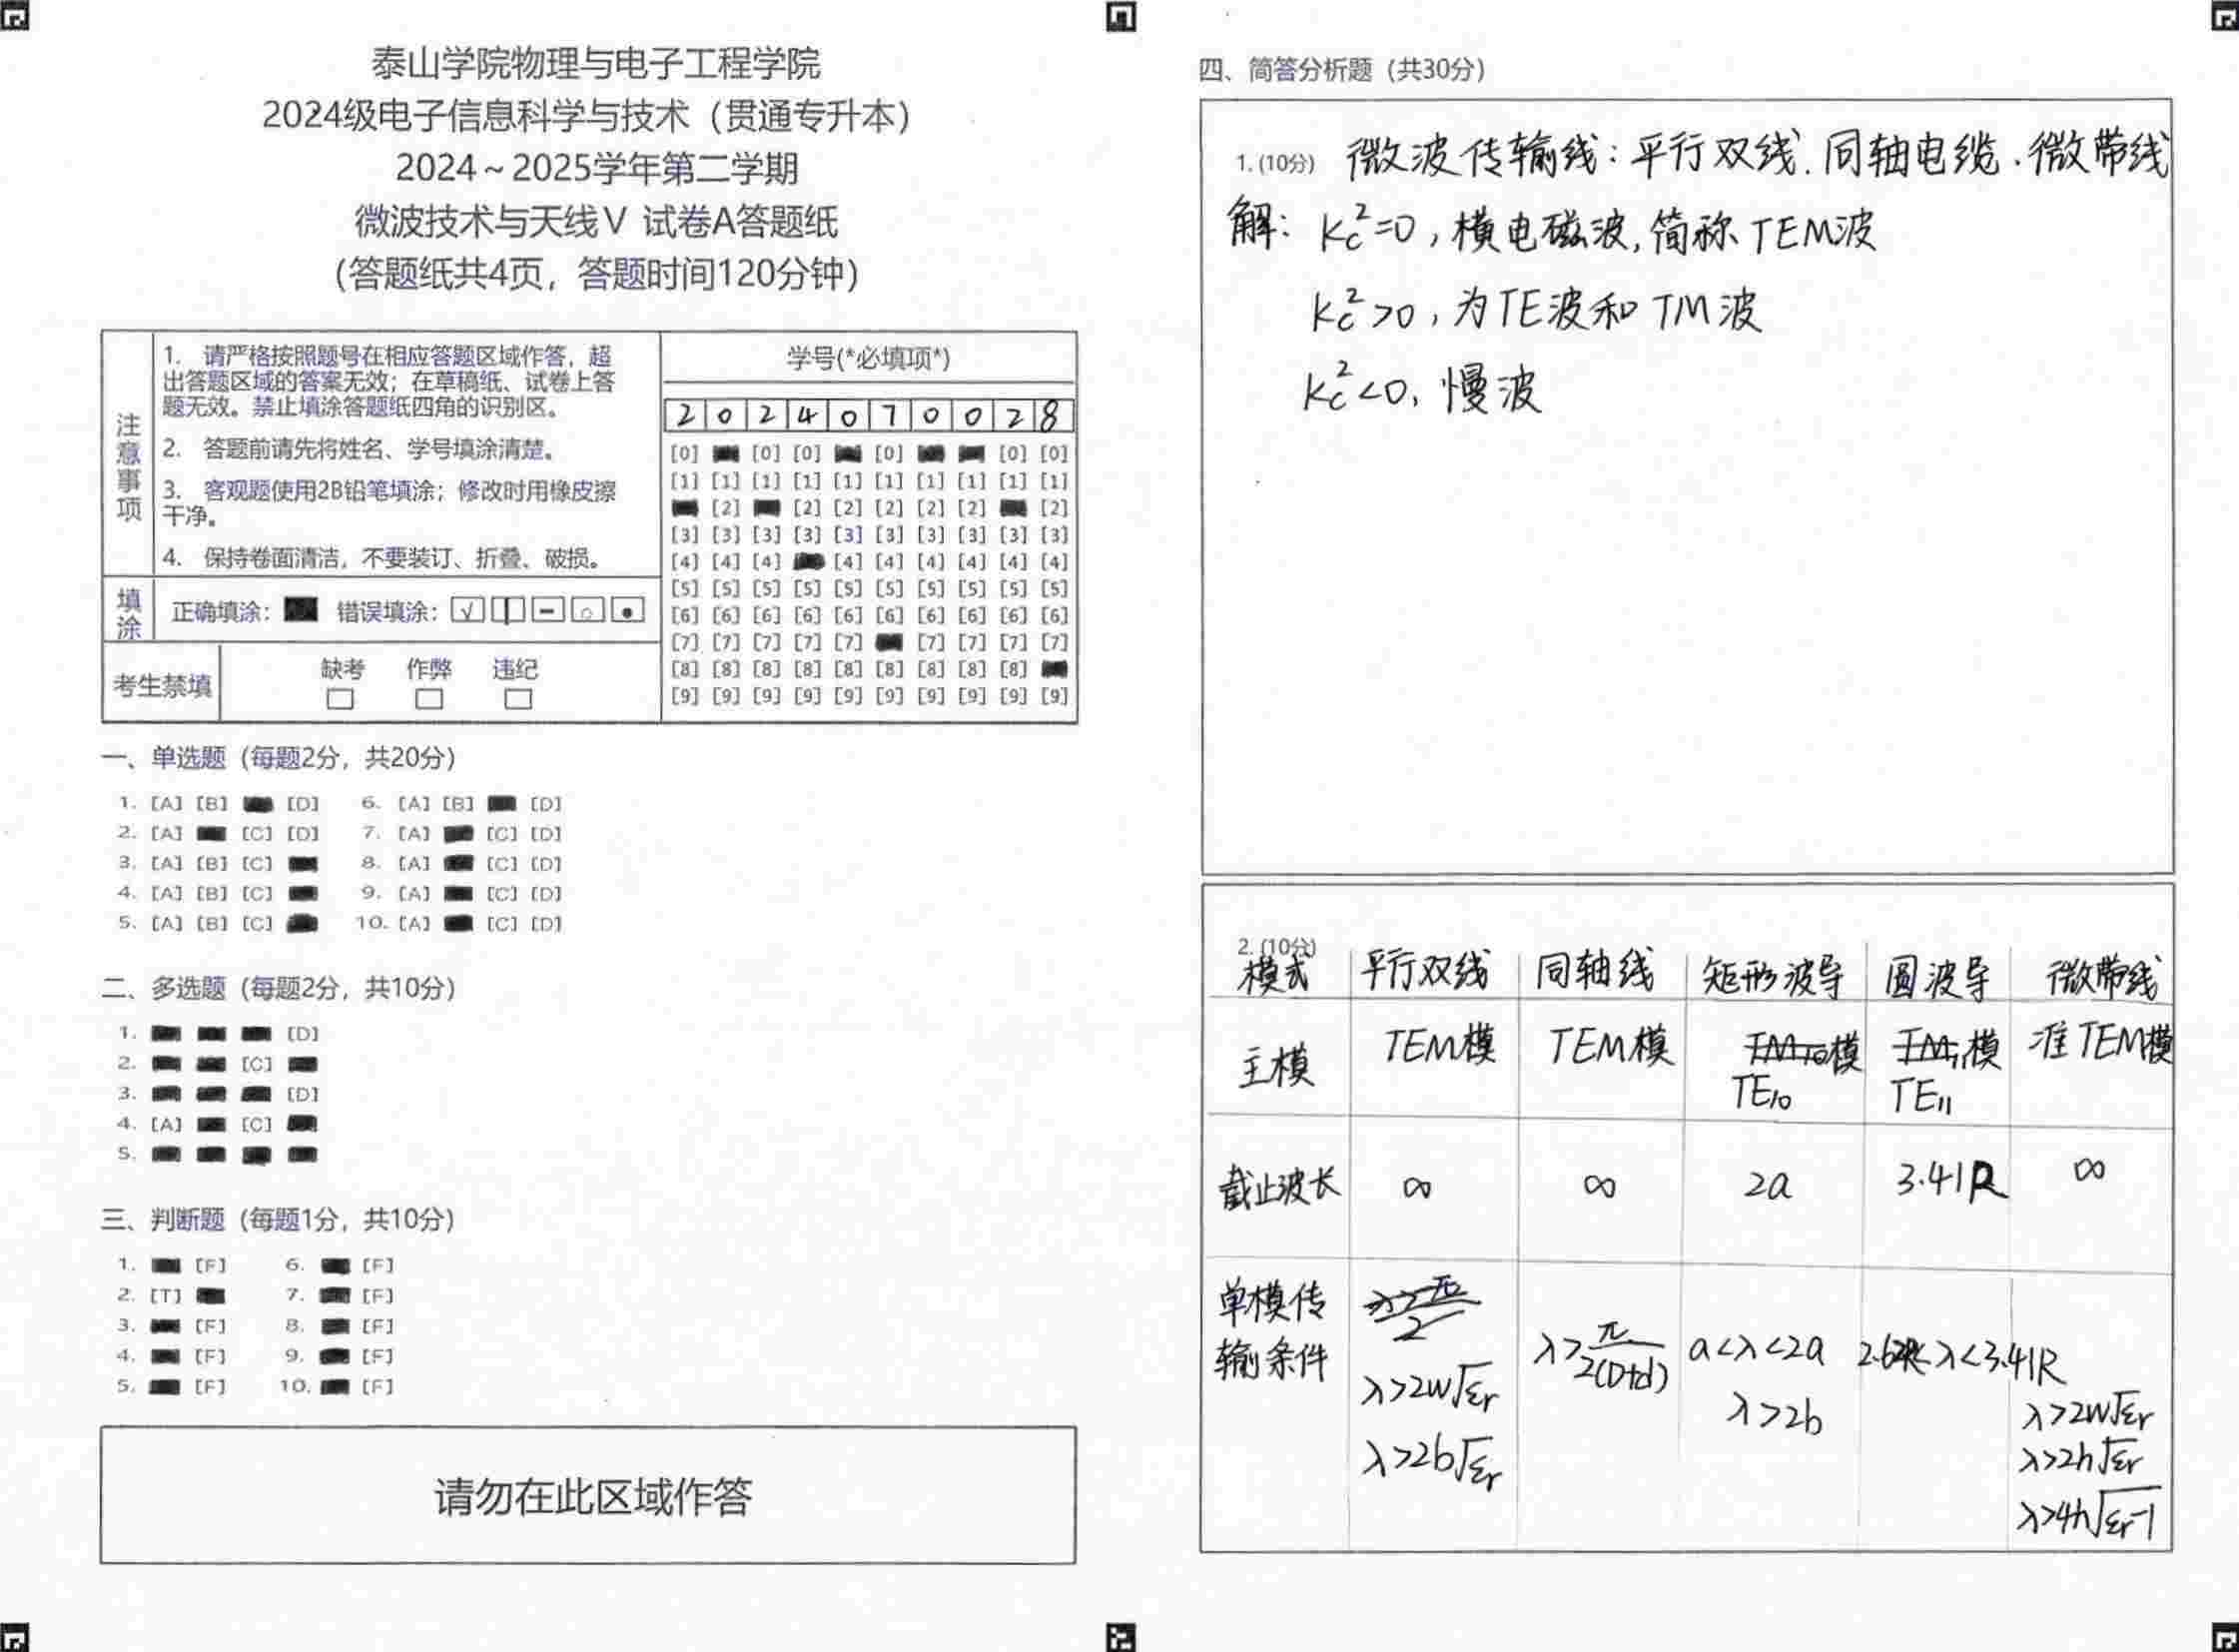 泰山学院物理与电子工程学院
2024级电子信息科学与技术（贯通专升本）
2024～2025学年第二学期
微波技术与天线Ⅴ 试卷A答题纸
（答题纸共4页，答题时间120分钟）
注意事项
1. 请严格按照题号在相应答题区域作答，超
出答题区域的答案无效；在草稿纸、试卷上答
题无效。禁止填涂答题纸四角的识别区。
2. 答题前请先将姓名、学号填涂清楚。
3. 客观题使用2B铅笔填涂；修改时用橡皮擦
干净。
4. 保持卷面清洁，不要装订、折叠、破损。
填涂 正确填涂： 错误填涂：
考生禁填 缺考 作弊 违纪
学号(*必填项*)
2 0 2 4 0 7 0 0 2 8
[0] [0] [0] [0] [0] [0]
[1] [1] [1] [1] [1] [1] [1] [1] [1] [1]
[2] [2] [2] [2] [2] [2] [2]
[3] [3] [3] [3] [3] [3] [3] [3] [3] [3]
[4] [4] [4] [4] [4] [4] [4] [4] [4]
[5] [5] [5] [5] [5] [5] [5] [5] [5] [5]
[6] [6] [6] [6] [6] [6] [6] [6] [6] [6]
[7] [7] [7] [7] [7] [7] [7] [7] [7]
[8] [8] [8] [8] [8] [8] [8] [8] [8]
[9] [9] [9] [9] [9] [9] [9] [9] [9] [9]
一、单选题（每题2分，共20分）
1. [A] [B] [D] 6. [A] [B] [D]
2. [A] [C] [D] 7. [A] [C] [D]
3. [A] [B] [C] 8. [A] [C] [D]
4. [A] [B] [C] 9. [A] [C] [D]
5. [A] [B] [C] 10. [A] [C] [D]
二、多选题（每题2分，共10分）
1. [D]
2. [C]
3. [D]
4. [A] [C]
5.
三、判断题（每题1分，共10分）
1. [F] 6. [F]
2. [T] 7. [F]
3. [F] 8. [F]
4. [F] 9. [F]
5. [F] 10. [F]
请勿在此区域作答
四、简答分析题（共30分）
1. (10分) 微波传输线：平行双线.同轴电缆.微带线
解：Kc²=0，横电磁波，简称TEM波
Kc²>0，为TE波和TM波
Kc²<0，慢波
2. (10分)
模式 平行双线 同轴线 矩形波导 圆波导 微带线
主模 TEM模 TEM模 模 TE10 模 TE11 准TEM模
截止波长 ∞ ∞ 2a 3.41R ∞
单模传输条件
λ>2w√εr
λ>2b√εr
λ>π/2(D+d)
a<λ<2a
λ>2b
2.62R<λ<3.41R
λ>2w√εr
λ>2h√εr
λ>4h√εr-1